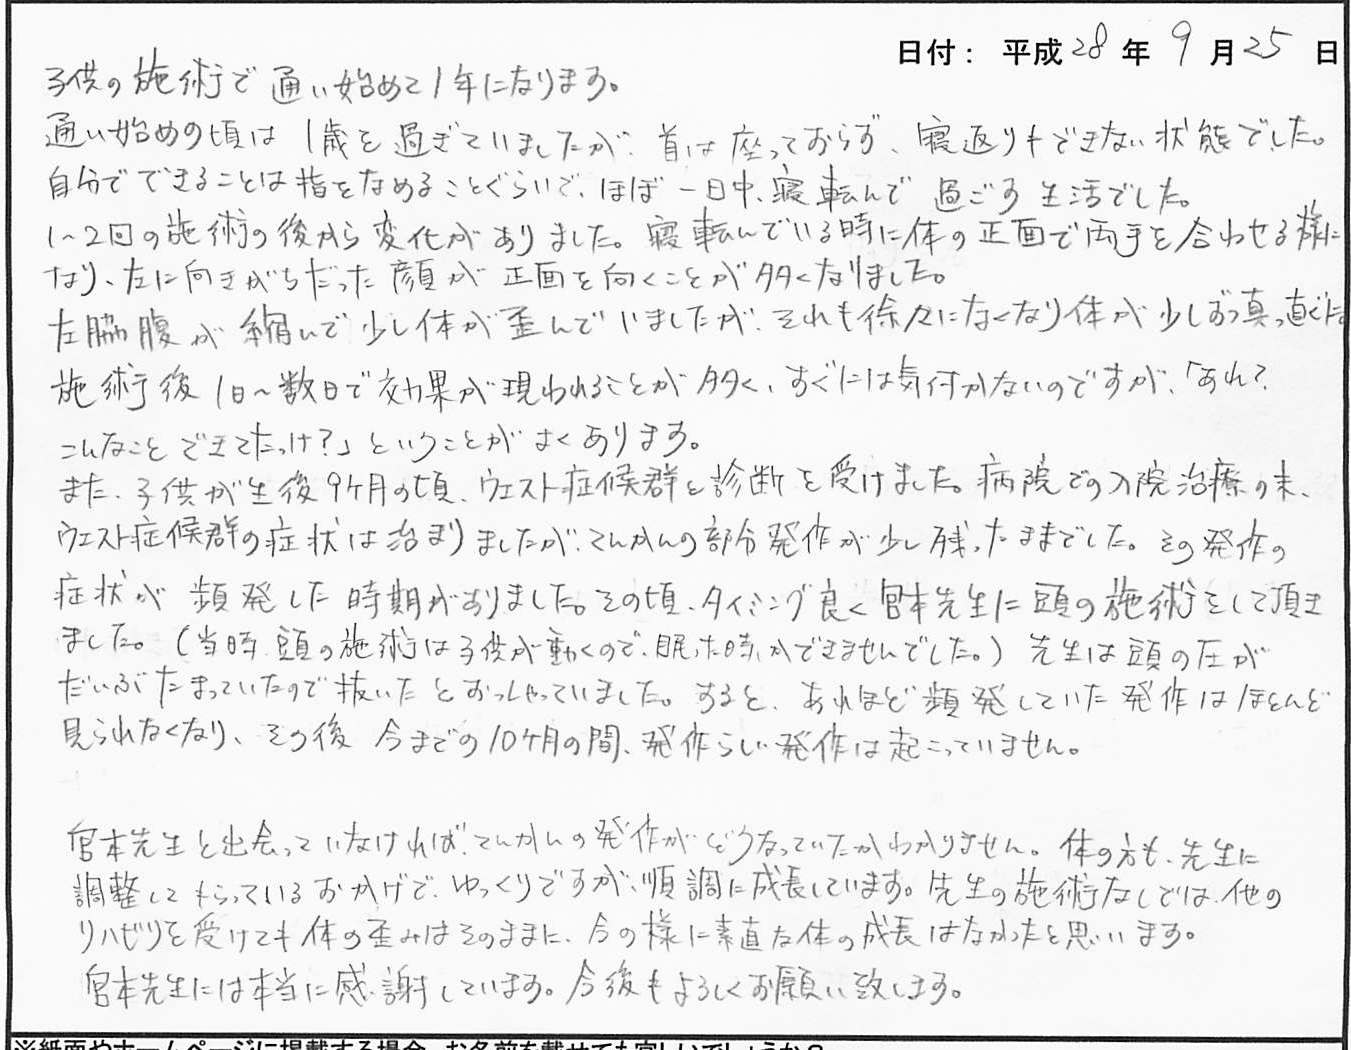 日付： 平成28年 9月25日
子供の施術で通い始めて1年になります。
通い始めの頃は1歳を過ぎていましたが、首は座っておらず、寝返りもできない状態でした。
自分でできることは指をなめることぐらいで、ほぼ一日中、寝転んで過ごす生活でした。
1〜2回の施術の後から変化がありました。寝転んでいる時に体の正面で両手を合わせる様に
なり、左に向きがちだった顔が正面を向くことが多くなりました。
左脇腹が縮んで少し体が歪んでいましたが、それも徐々になくなり体が少しずつ真っ直ぐに。
施術後1日〜数日で効果が現われることが多く、すぐには気付かないのですが、「あれ？
こんなことできてたっけ？」ということがよくあります。
また、子供が生後9ヶ月の頃、ウエスト症候群と診断を受けました。病院での入院治療の末、
ウエスト症候群の症状は治まりましたが、てんかんの部分発作が少し残ったままでした。その発作の
症状が頻発した時期がありました。その頃、タイミング良く宮本先生に頭の施術をして頂き
ました。（当時、頭の施術は子供が動くので、眠った時しかできませんでした。）先生は頭の圧が
だいぶたまっていたので抜いたとおっしゃっていました。すると、あれほど頻発していた発作はほとんど
見られなくなり、その後 今までの10ヶ月の間、発作らしい発作は起こっていません。
宮本先生と出会っていなければ、てんかんの発作がどうなっていたかわかりません。体の方も、先生に
調整してもらっているおかげで、ゆっくりですが、順調に成長しています。先生の施術なしでは、他の
リハビリを受けても体の歪みはそのままに、今の様に素直な体の成長はなかったと思います。
宮本先生には本当に感謝しています。今後もよろしくお願い致します。
※紙面やホームページに掲載する場合、お名前を載せても宜しいでしょうか？